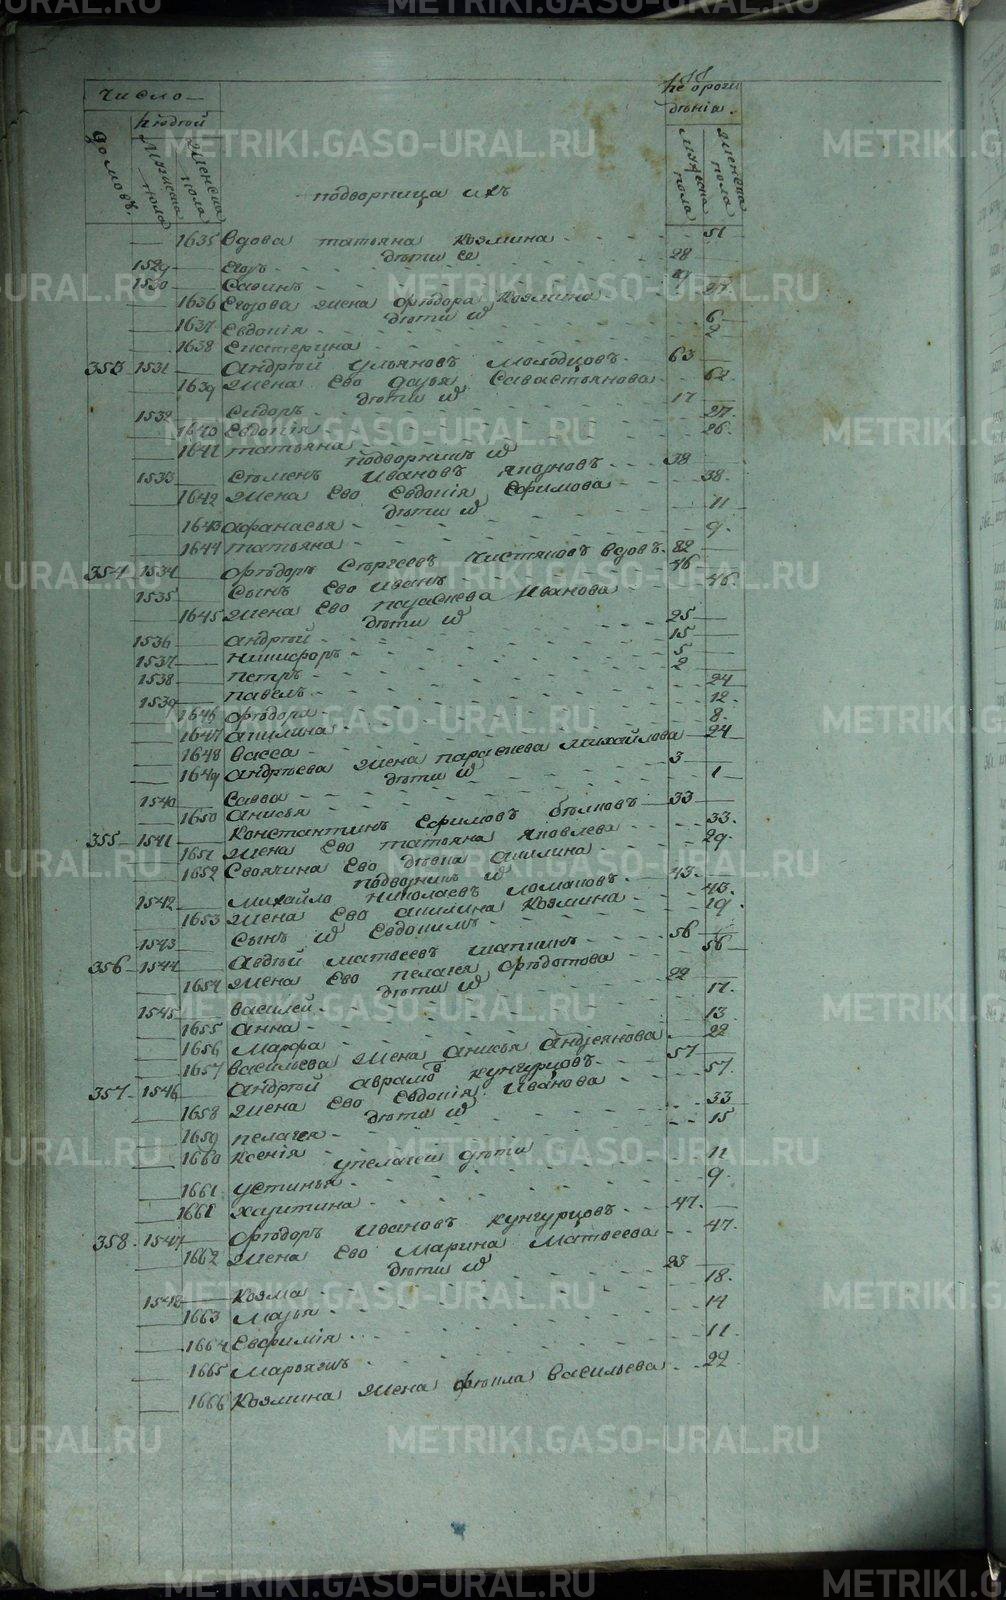 Число
людей
домовъ.
Мужеска пола
Женска пола
подворница ихъ
Мужеска пола
Женска пола
1635 вдова татьяна козмина 51
дети ее
1529 Егоръ 28
1530 Савинъ
1636 Егорова жена Фрѣдора Козмина 27
дети и
1637 Евдокія 6
1638 Екатерина 2
353 1531 андрѣй ульяновъ молодцовъ 63
1639 жена Ево дарья Савастьянова 62
дѣти и
1532 Сидоръ 17
1640 Евдокія 27
1641 татьяна 26
подворникъ и
1533 Стѣпенъ Ивановъ 38
1642 жена Ево Евдокія Ефимова 38
дѣти и
1643 Афанасья 11
1644 татьяна 9
354 1534 Фрѣдоръ Сѣргеевъ Чистяковъ вдовъ 82
1535 Сынъ Ево Иванъ 46
1645 жена Ево параскева Иванова 46
дѣти и
1536 андрѣй 25
1537 никифоръ 15
1538 петръ 5
1539 павелъ 2
1646 Фрѣдора 24
1647 акилина 12
1648 васса 8
1649 андрѣева жена параскева михайлова 24
дѣти и
1540 Савва 3
1650 анисья 1
355 1541 Константинъ Ефимовъ бѣлковъ 33
1651 жена Ево татьяна яковлева 33
1652 Своячина Ево дѣвка акилина 29
подворникъ и
1542 михайло николаевъ ломаковъ 43
1653 жена Ево акилина Козмина 43
1543 Сынъ и Евдокимъ 19
356 1544 авдѣй матвеевъ шапкинъ 56
1654 жена Ево пелагея Фрѣдотова 56
дѣти и
1545 василей 22
1655 анна 17
1656 марфа 13
1657 васильева жена анисья андреянова 22
357 1546 андрѣй аврамов кунгурцовъ 57
1658 жена Ево Евдокія Иванова 57
дѣти и
1659 пелагея 33
1660 Ксенія 15
упелагеи дѣти
1661 устинья 11
1661 харитина 9
358 1547 Фрѣдоръ Ивановъ кунгурцовъ 47
1662 жена Ево марина матвеева 47
дѣти и
1548 Козма 23
1663 марья 18
1664 Евфимія 14
1665 марья 11
1666 Козмина жена фѣкла васильева 22
METRIKI.GASO-URAL.RU